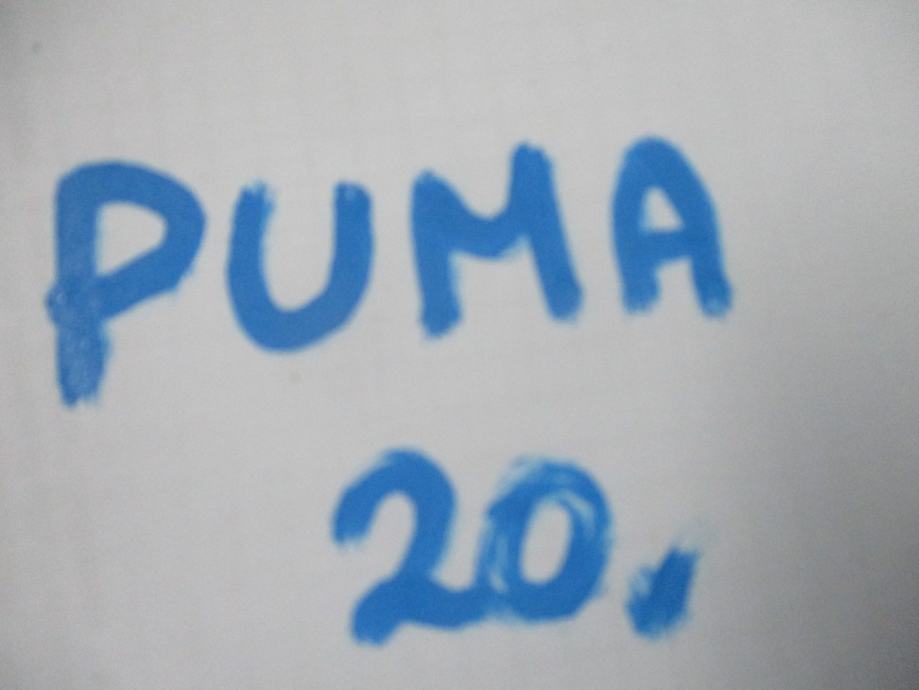 PUMA
20.